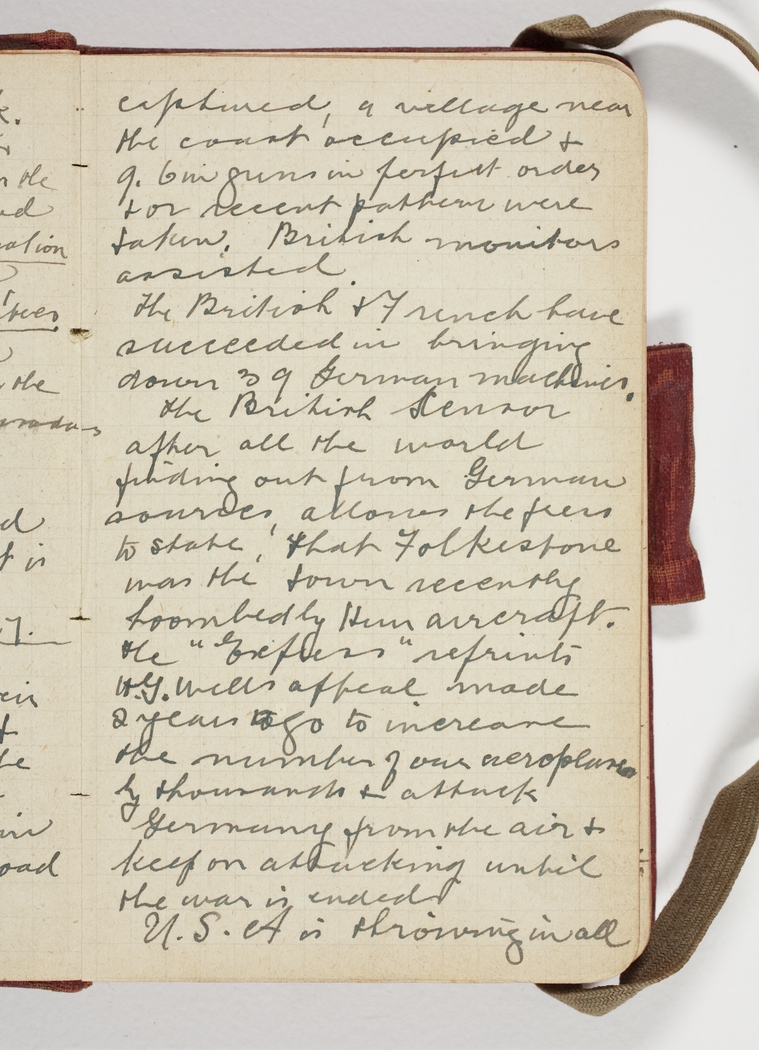 k.
the
ation
the
d
t is
7.
&
oad
captured, a village near
the coast occupied &
9. 6in guns in perfect order
& or recent pattern were
taken. British monitors
assisted.
The British & French have
succeeded in bringing
down 39 German machines.
The British Sensor
after all the world
finding out from German
sources, allows the press
to state, that Folkestone
was the town recently
bombed by Hun aircraft.
The "Express" reprints
H.G. Wells appeal made
2 years ago to increase
the number of our aeroplanes
by thousands & attack
Germany from the air &
keep on attacking until
the war is ended
U.S.A is throwing in all